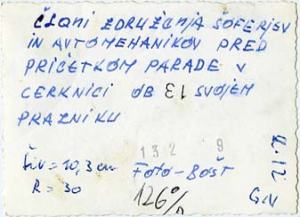 ČLANI ZDRUŽENJA ŠOFERJEV
IN AVTOMEHANIKOV PRED
PRIČETKOM PARADE V
CERKNICI OB 13 SVOJEM
PRAZNIKU
Šir = 10,3 cm
R = 30
132 9
FOTO-BOŠT
126%
G.N